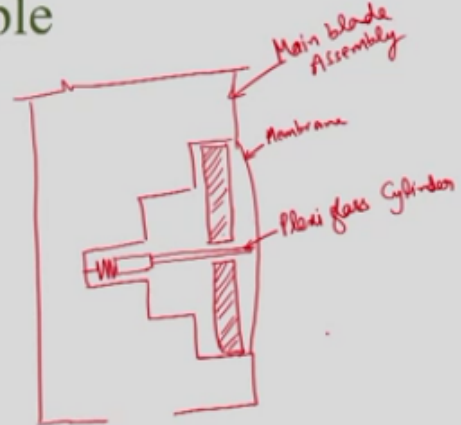 ple
Main blade
Assembly
Membrane
Plexi glass Cylinder